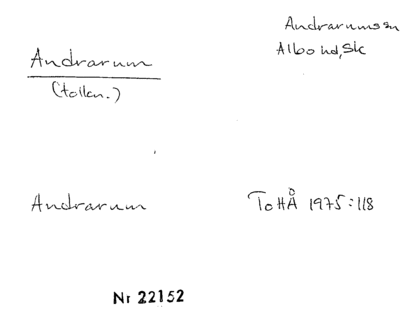 Andrarumssn
Albo hd, Sk
Andrarum
(tolkn.)
Andrarum
ToHÅ 1975:118
Nr 22152